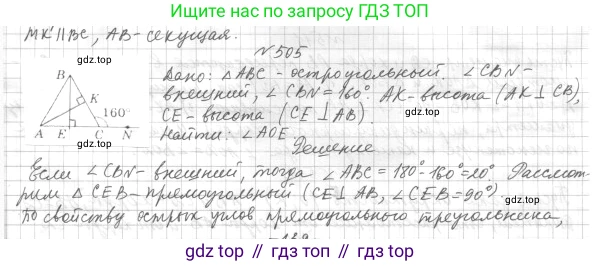 Ищите нас по запросу ГДЗ ТОП
MK || BC, AB - секущая.
N 505
Дано: △ ABC - остроугольный. ∠ CBN -
внешний, ∠ CBN = 160°. AK - высота (AK ⊥ CB),
CE - высота (CE ⊥ AB).
Найти: ∠ AOE.
B
K
160°
A E C N
Решение
Если ∠ CBN - внешний, тогда ∠ ABC = 180° - 160° = 20°. Рассмот-
рим △ CEB - прямоугольный (CE ⊥ AB, ∠ CEB = 90°).
По свойству острых углов прямоугольного треугольника,
gdz.top // гдз.топ // gdz.top // гдз.топ // gdz.top